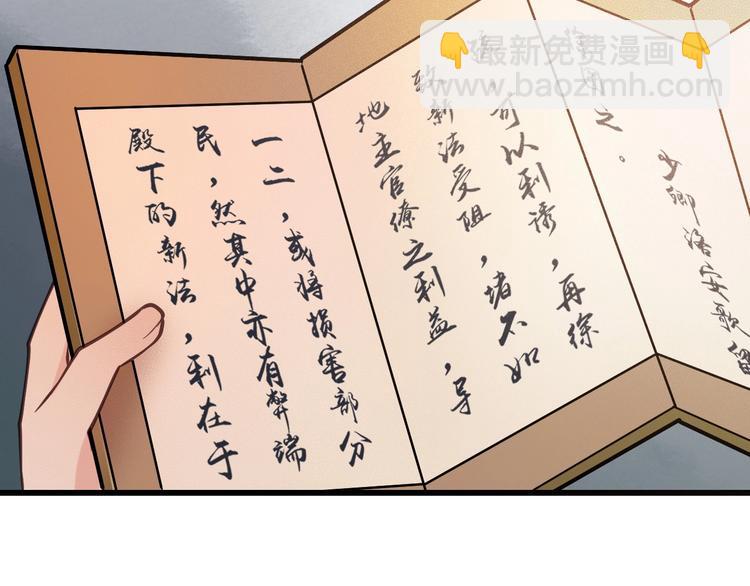 👇最新免费漫画👇
www.baozimh.com
殿下的新法，利在于
民，然其中亦有弊端
一二，或将损害部分
地主官僚之利益，导
致新法受阻，堵不如
可以利诱，再徐
之。
少卿洛安歌留